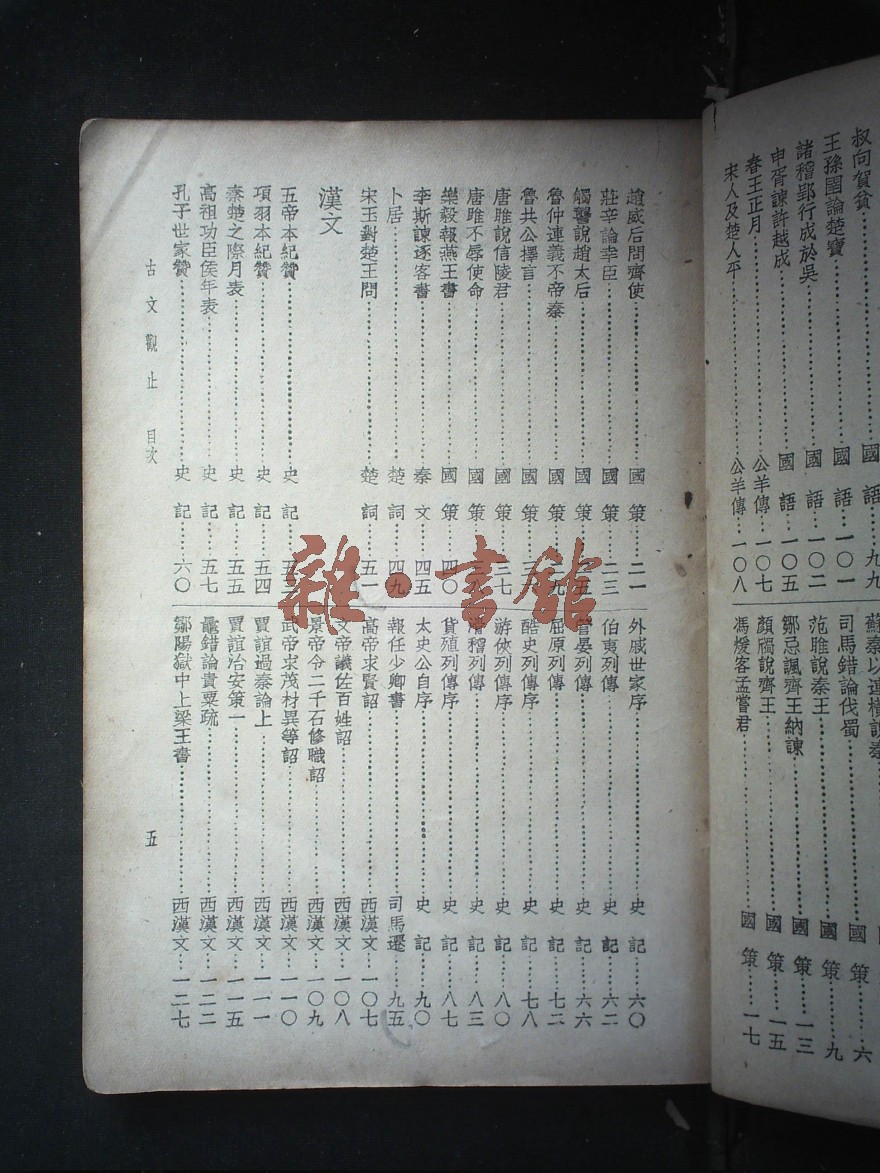 叔向賀貧……國語…九九
王孫圉論楚寶……國語…一〇一
諸稽郢行成於吳……國語…一〇二
申胥諫許越成……國語…一〇五
春王正月……公羊傳…一〇七
宋人及楚人平……公羊傳…一〇八
蘇秦以連橫說秦
司馬錯論伐蜀……國策…六
范雎說秦王……國策…九
鄒忌諷齊王納諫……國策…一三
顏斶說齊王……國策…一五
馮煖客孟嘗君……國策…一七
趙威后問齊使……國策…二一
莊辛論幸臣……國策…二三
觸讋說趙太后……國策…二五
魯仲連義不帝秦……國策
魯共公擇言……國策
唐雎說信陵君……國策…三七
唐雎不辱使命……國策
樂毅報燕王書……國策…四〇
李斯諫逐客書……秦文…四五
卜居……楚詞…四九
宋玉對楚王問……楚詞…五一
漢文
五帝本紀贊……史記
項羽本紀贊……史記…五四
秦楚之際月表……史記…五五
高祖功臣侯年表……史記…五七
孔子世家贊……史記…六〇
外戚世家序……史記…六〇
伯夷列傳……史記…六二
管晏列傳……史記…六六
屈原列傳……史記…七二
酷吏列傳序……史記…七八
游俠列傳序……史記…八〇
滑稽列傳……史記…八三
貨殖列傳序……史記…八七
太史公自序……史記…九〇
報任少卿書……司馬遷…九五
高帝求賢詔……西漢文…一〇七
文帝議佐百姓詔……西漢文…一〇八
景帝令二千石修職詔……西漢文…一〇九
武帝求茂材異等詔……西漢文…一一〇
賈誼過秦論上……西漢文…一一一
賈誼治安策一……西漢文…一一五
鼂錯論貴粟疏……西漢文…一二二
鄒陽獄中上梁王書……西漢文…一二七
古文觀止 目次 五
雜·書館